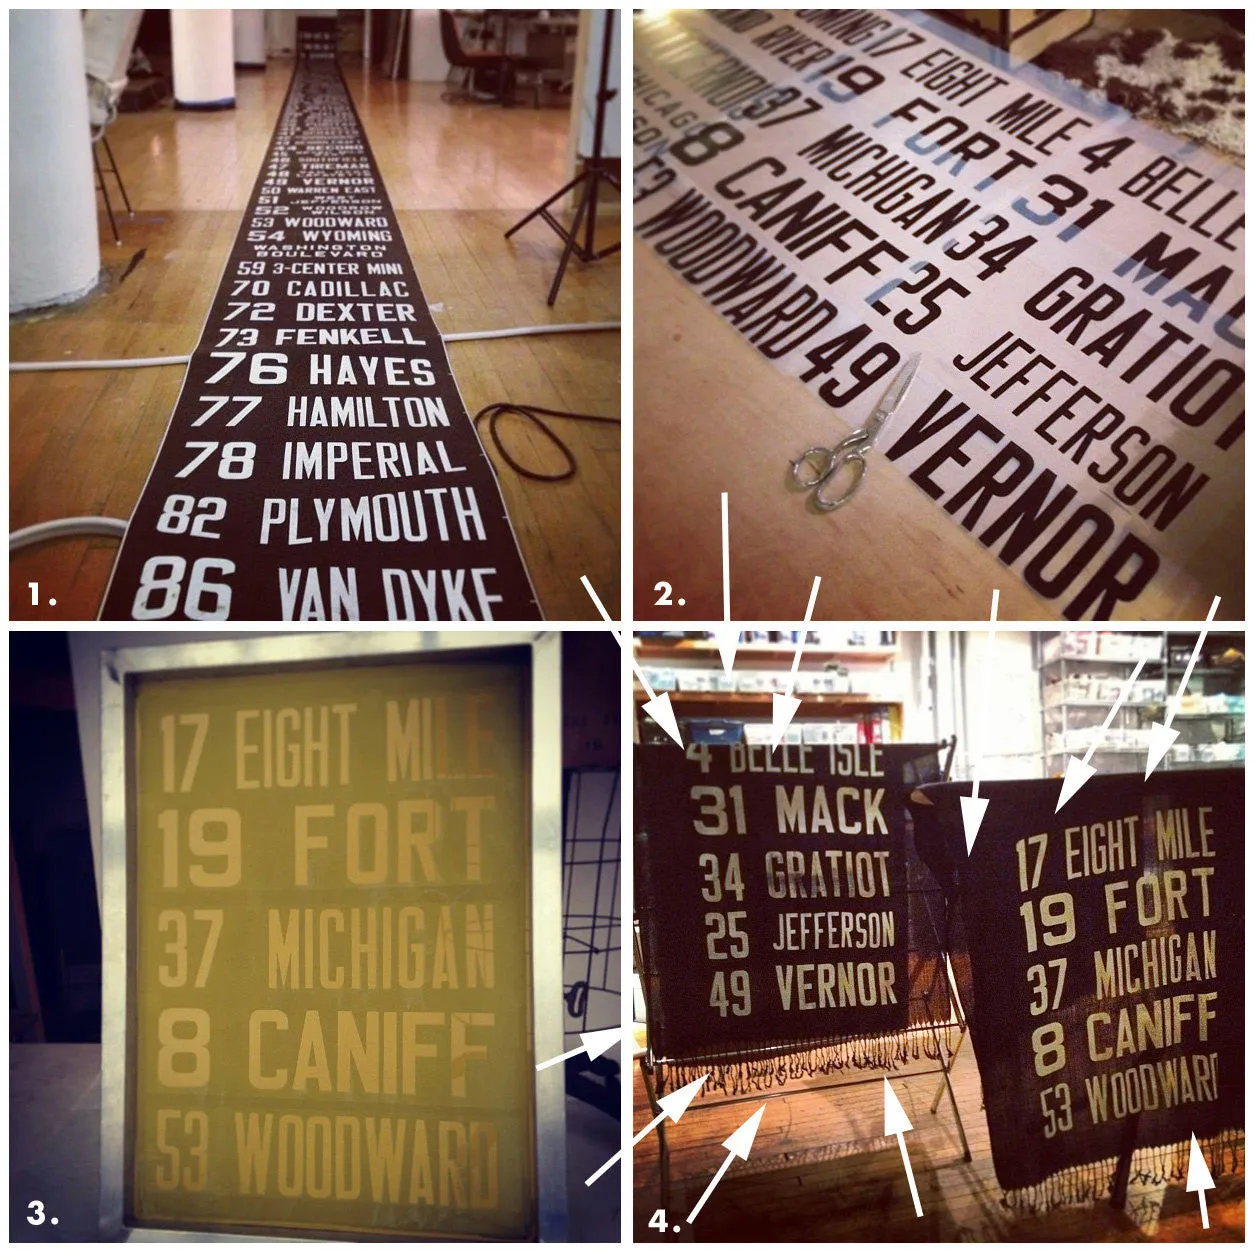 46 SOUTHFIELD
47 TIREMAN
49 VERNOR
50 WARREN EAST
51 WEST JEFFERSON
52 WOODROW WILSON
53 WOODWARD
54 WYOMING
WASHINGTON
BOULEVARD
59 3-CENTER MINI
70 CADILLAC
72 DEXTER
73 FENKELL
76 HAYES
77 HAMILTON
78 IMPERIAL
82 PLYMOUTH
86 VAN DYKE
1.
17 EIGHT MILE 4 BELLE
RIVER 19 FORT 31 MAC
37 MICHIGAN 34 GRATIOT
8 CANIFF 25 JEFFERSON
53 WOODWARD 49 VERNOR
2.
17 EIGHT MILE
19 FORT
37 MICHIGAN
8 CANIFF
53 WOODWARD
3.
4 BELLE ISLE
31 MACK
34 GRATIOT
25 JEFFERSON
49 VERNOR
17 EIGHT MILE
19 FORT
37 MICHIGAN
8 CANIFF
53 WOODWARD
4.